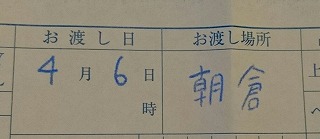 お渡し日 お渡し場所
4月6日 朝倉
時
上